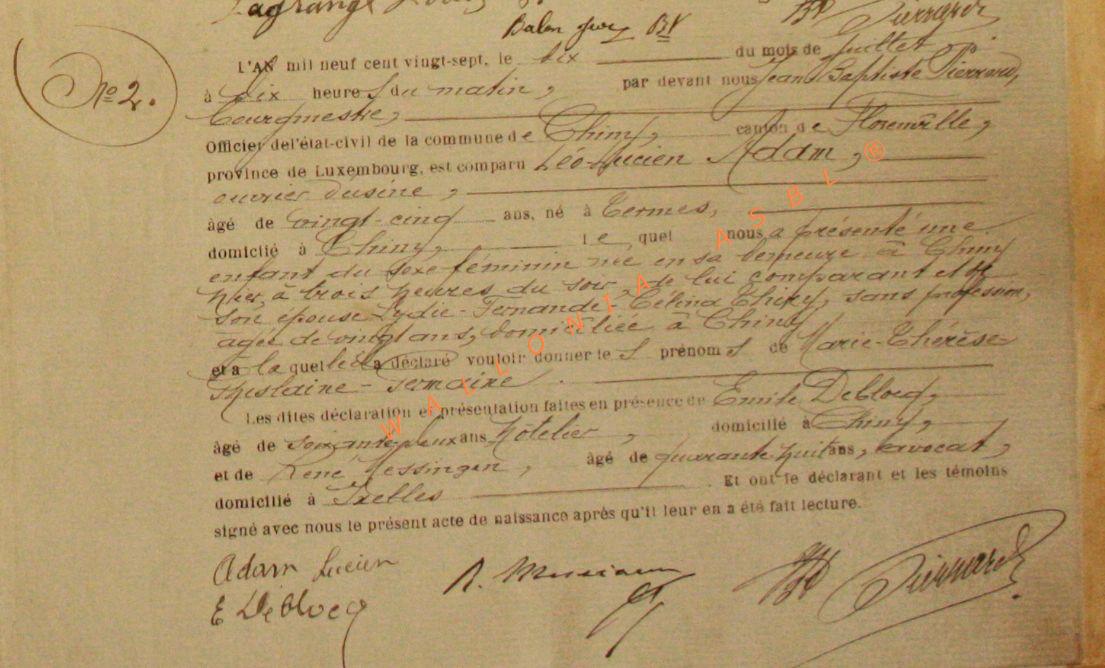 Lagrange
Balon
Pierrard
L'AN mil neuf cent vingt-sept, le dix du mois de juillet
à dix heures du matin, par devant nous Jean Baptiste Pierrard,
bourgmestre,
Officier de l'état-civil de la commune de Chiny, canton de Florenville,
province de Luxembourg, est comparu Léo-Lucien Adam, ®
ouvrier d'usine,
âgé de vingt-cinq ans, né à Termes,
domicilié à Chiny, le quel nous a présenté une
enfant du sexe féminin née en sa demeure à Chiny
hier, à trois heures du soir, de lui comparant et de
son épouse Lydie-Fernande-Célina Thiry, sans profession,
agée de vingt ans, domiciliée à Chiny
et à la quelle il a déclaré vouloir donner les prénoms de Marie-Thérèse
Ghislaine-Germaine.
Les dites déclaration et présentation faites en présence de Emile Deblocq,
âgé de soixante deux ans, hôtelier, domicilié à Chiny,
et de René Messingen, âgé de quarante huit ans, avocat,
domicilié à Ixelles. Et ont le déclarant et les témoins
signé avec nous le présent acte de naissance après qu'il leur en a été fait lecture.
Nº 2.
WALLONIA ASBL
Adam Lucien
E Deblocq
Pierrard